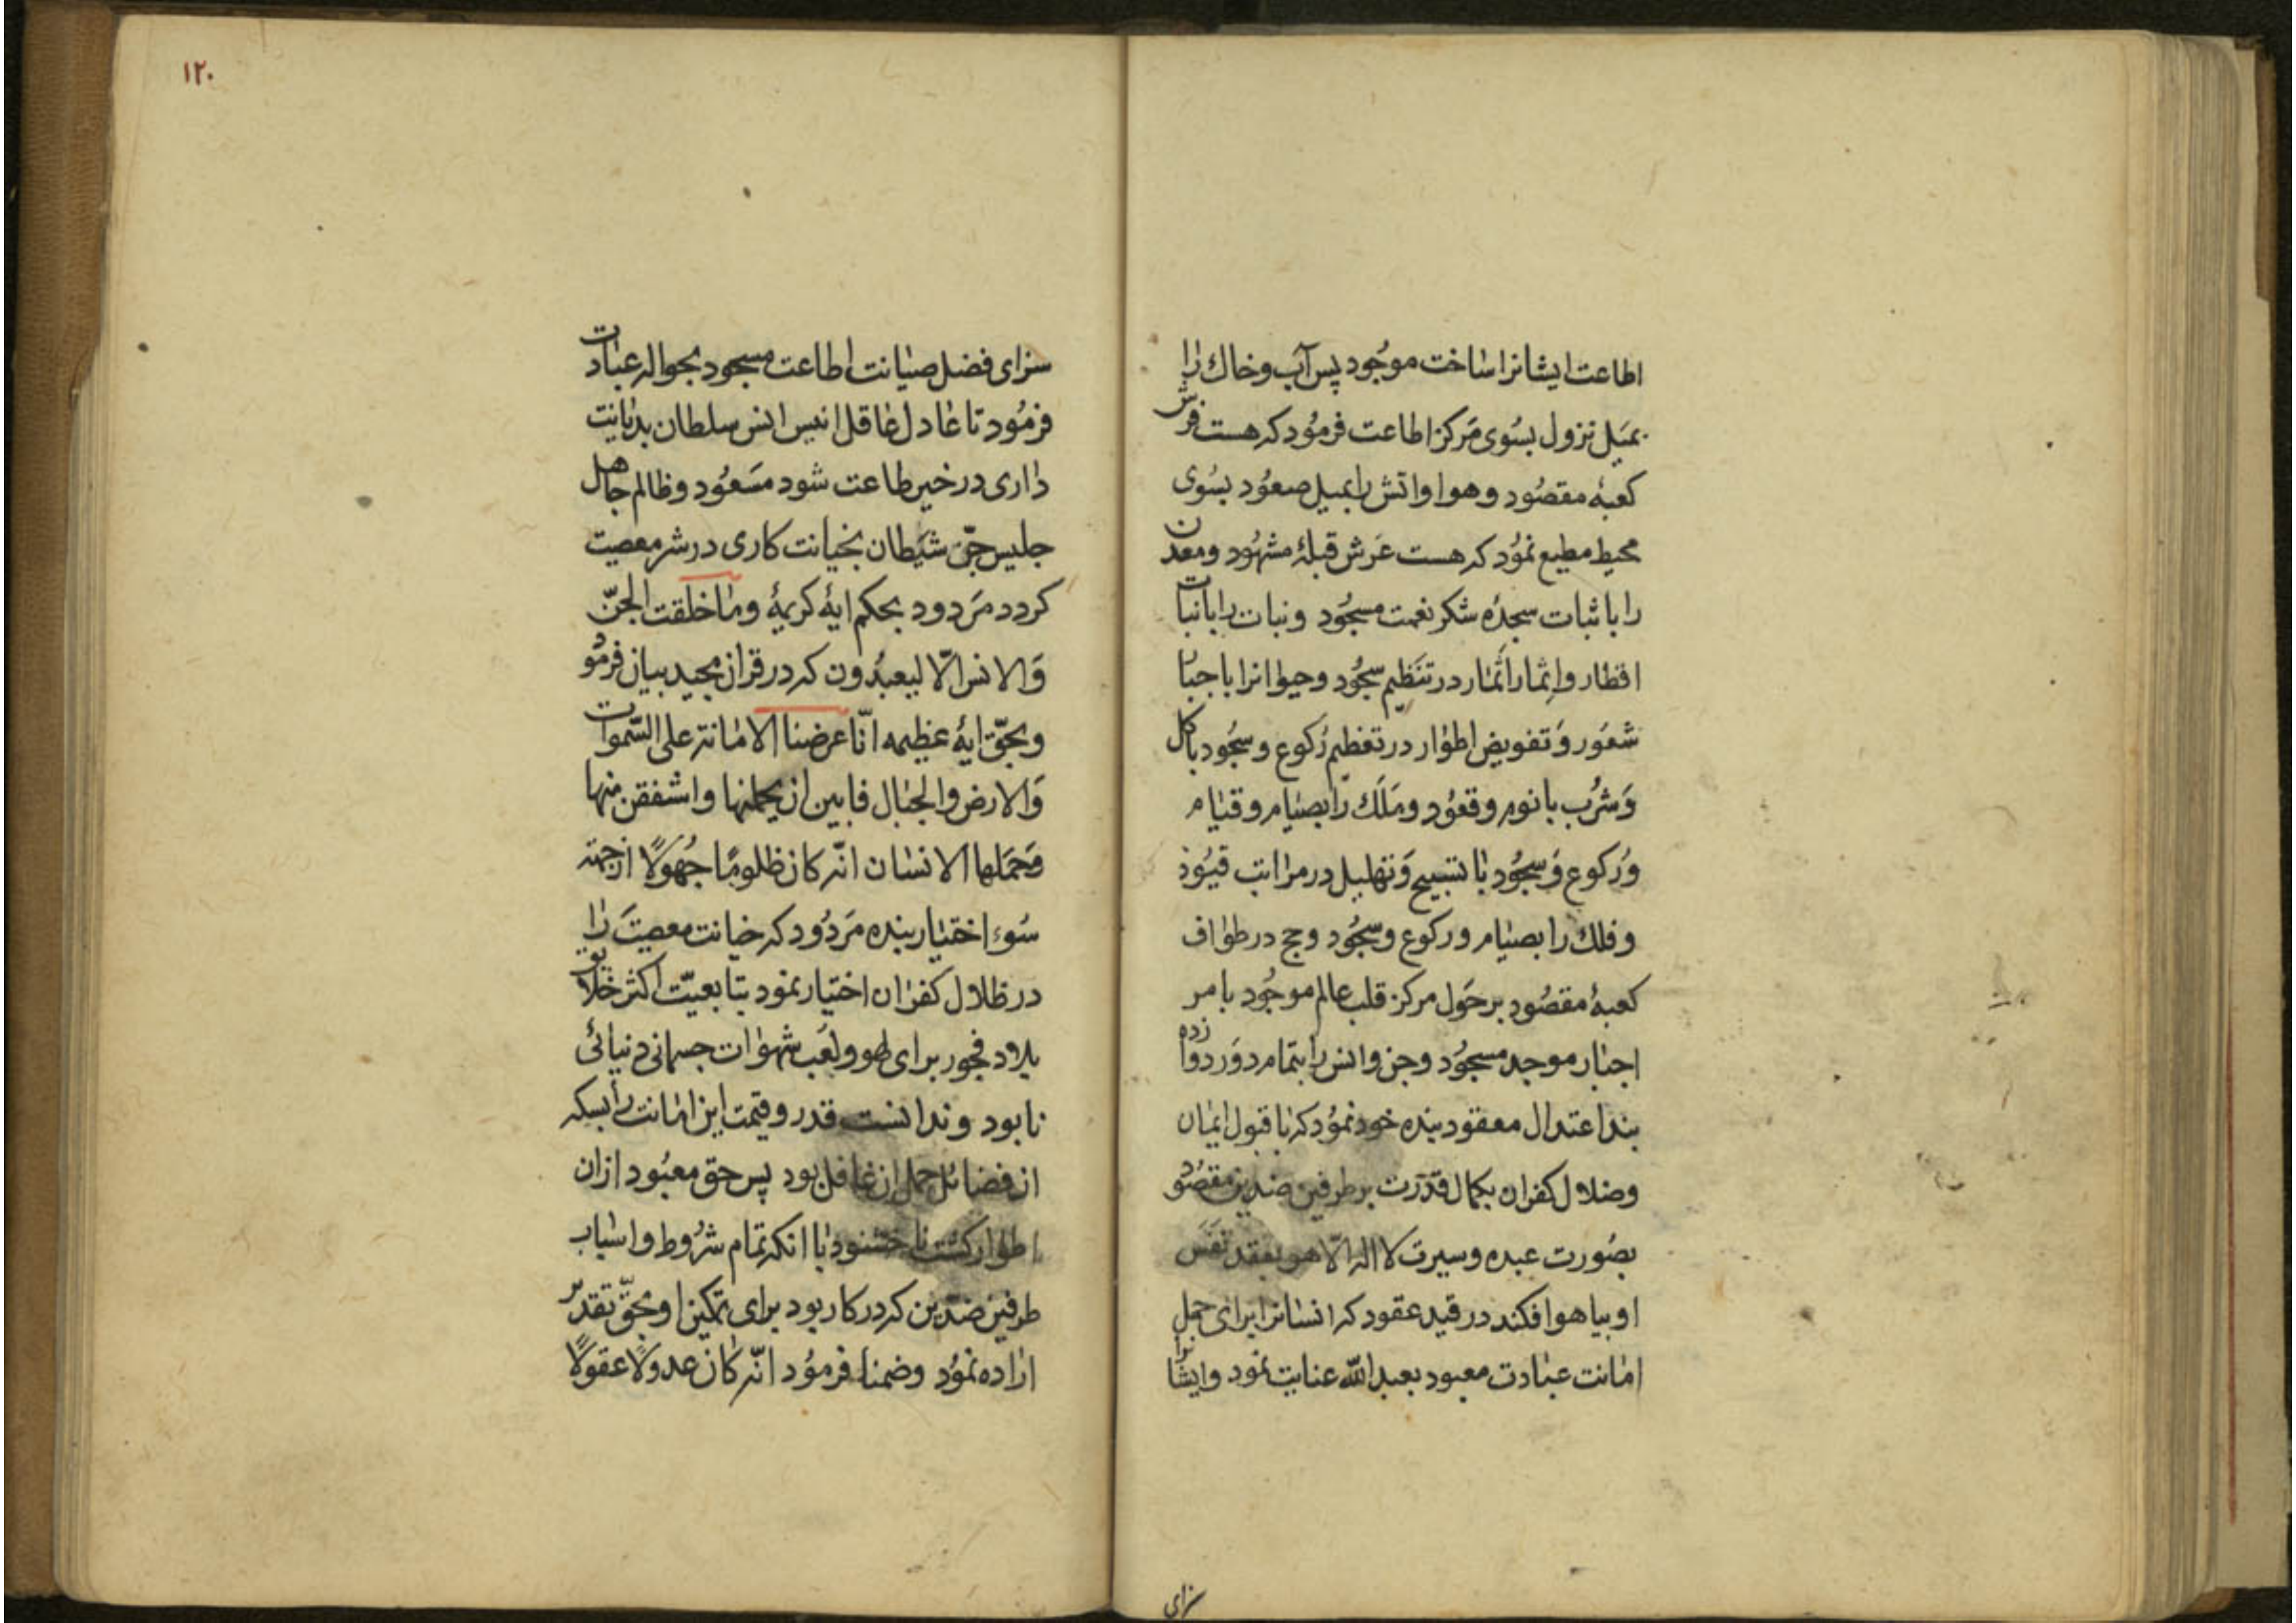 اطاعت ایشانرا ساخت موجود پس آب و خاك را
بمیل نزول بسوی مرکز اطاعت فرمود که هست فرش
کعبهٔ مقصود و هوا و اتش را بمیل صعود بسوی
محیط مطیع نمود که هست عرش قبلهٔ مشهود و معدن
را با ثبات سجدهٔ شکر نعمت مسجود و نبات را بانبات
اقطار و اثمار اثمار در تنظیم سجود و حیوانرا با
شعور و تفویض اطوار در تعظیم رکوع و سجود باکل
و شرب با نوم و قعود و ملك را بصیام و قیام
و رکوع و سجود با تسبیح و تهلیل در مراتب قیود
و فلك را بصیام و رکوع و سجود و حج در طواف
کعبهٔ مقصود بر حول مرکز قلب عالم موجود بامر
اجبار موجد مسجود و جن و انس را بتمام دور دوازده
بند اعتدال معقود بنده خود نمود که با قبول ایمان
و ضلال کفران بکمال قدرت بر طرفین ضدین مقصود
بصورت عبده و سیرت لا اله الّا هو بعقد نفس
او بیاهو افکند در قید عقود که انسانرا برای حمل
امانت عبادت معبود بعبد الله عنایت نمود و ایشانرا
سزای
۱۲۰
سزای فضل صیانت اطاعت مسجود بحواله عبادت
فرمود تا عادل عاقل انیس انس سلطان بدیانت
داری در خیر طاعت شود مسعود و ظالم جاهل
جلیس جنّ شیطان بخیانت کاری در شر معصیت
کردد مردود بحکم ایهٔ کریمهٔ وما خلقت الجنّ
والانس الّا لیعبدون که در قران مجید بیان فرمود
و بحقّ ایهٔ عظیمه انّا عرضنا الامانة علی السّموات
والارض والجبال فابین ان یحملنها واشفقن منها
وحملها الانسان انّه کان ظلومًا جهولًا از جهة
سوء اختیار بنده مردود که خیانت معصیت را
در ظلال کفران اختیار نمود بتابعیّت اکثر خلایق
پلاود فجور برای لهو و لعب شهوات جسمانی دنیائی
نابود و ندانست قدر و قیمت این امانت را بسکه
از فضائل حمل ان غافل بود پس حق معبود ازان
اطوار کشت ناخشنود با انکه تمام شروط و اسباب
طرفین ضدّین که در کار بود برای تمکین او بحقّ تقدیر
اراده نمود و ضمنا فرمود انّه کان عدولًا عقولًا